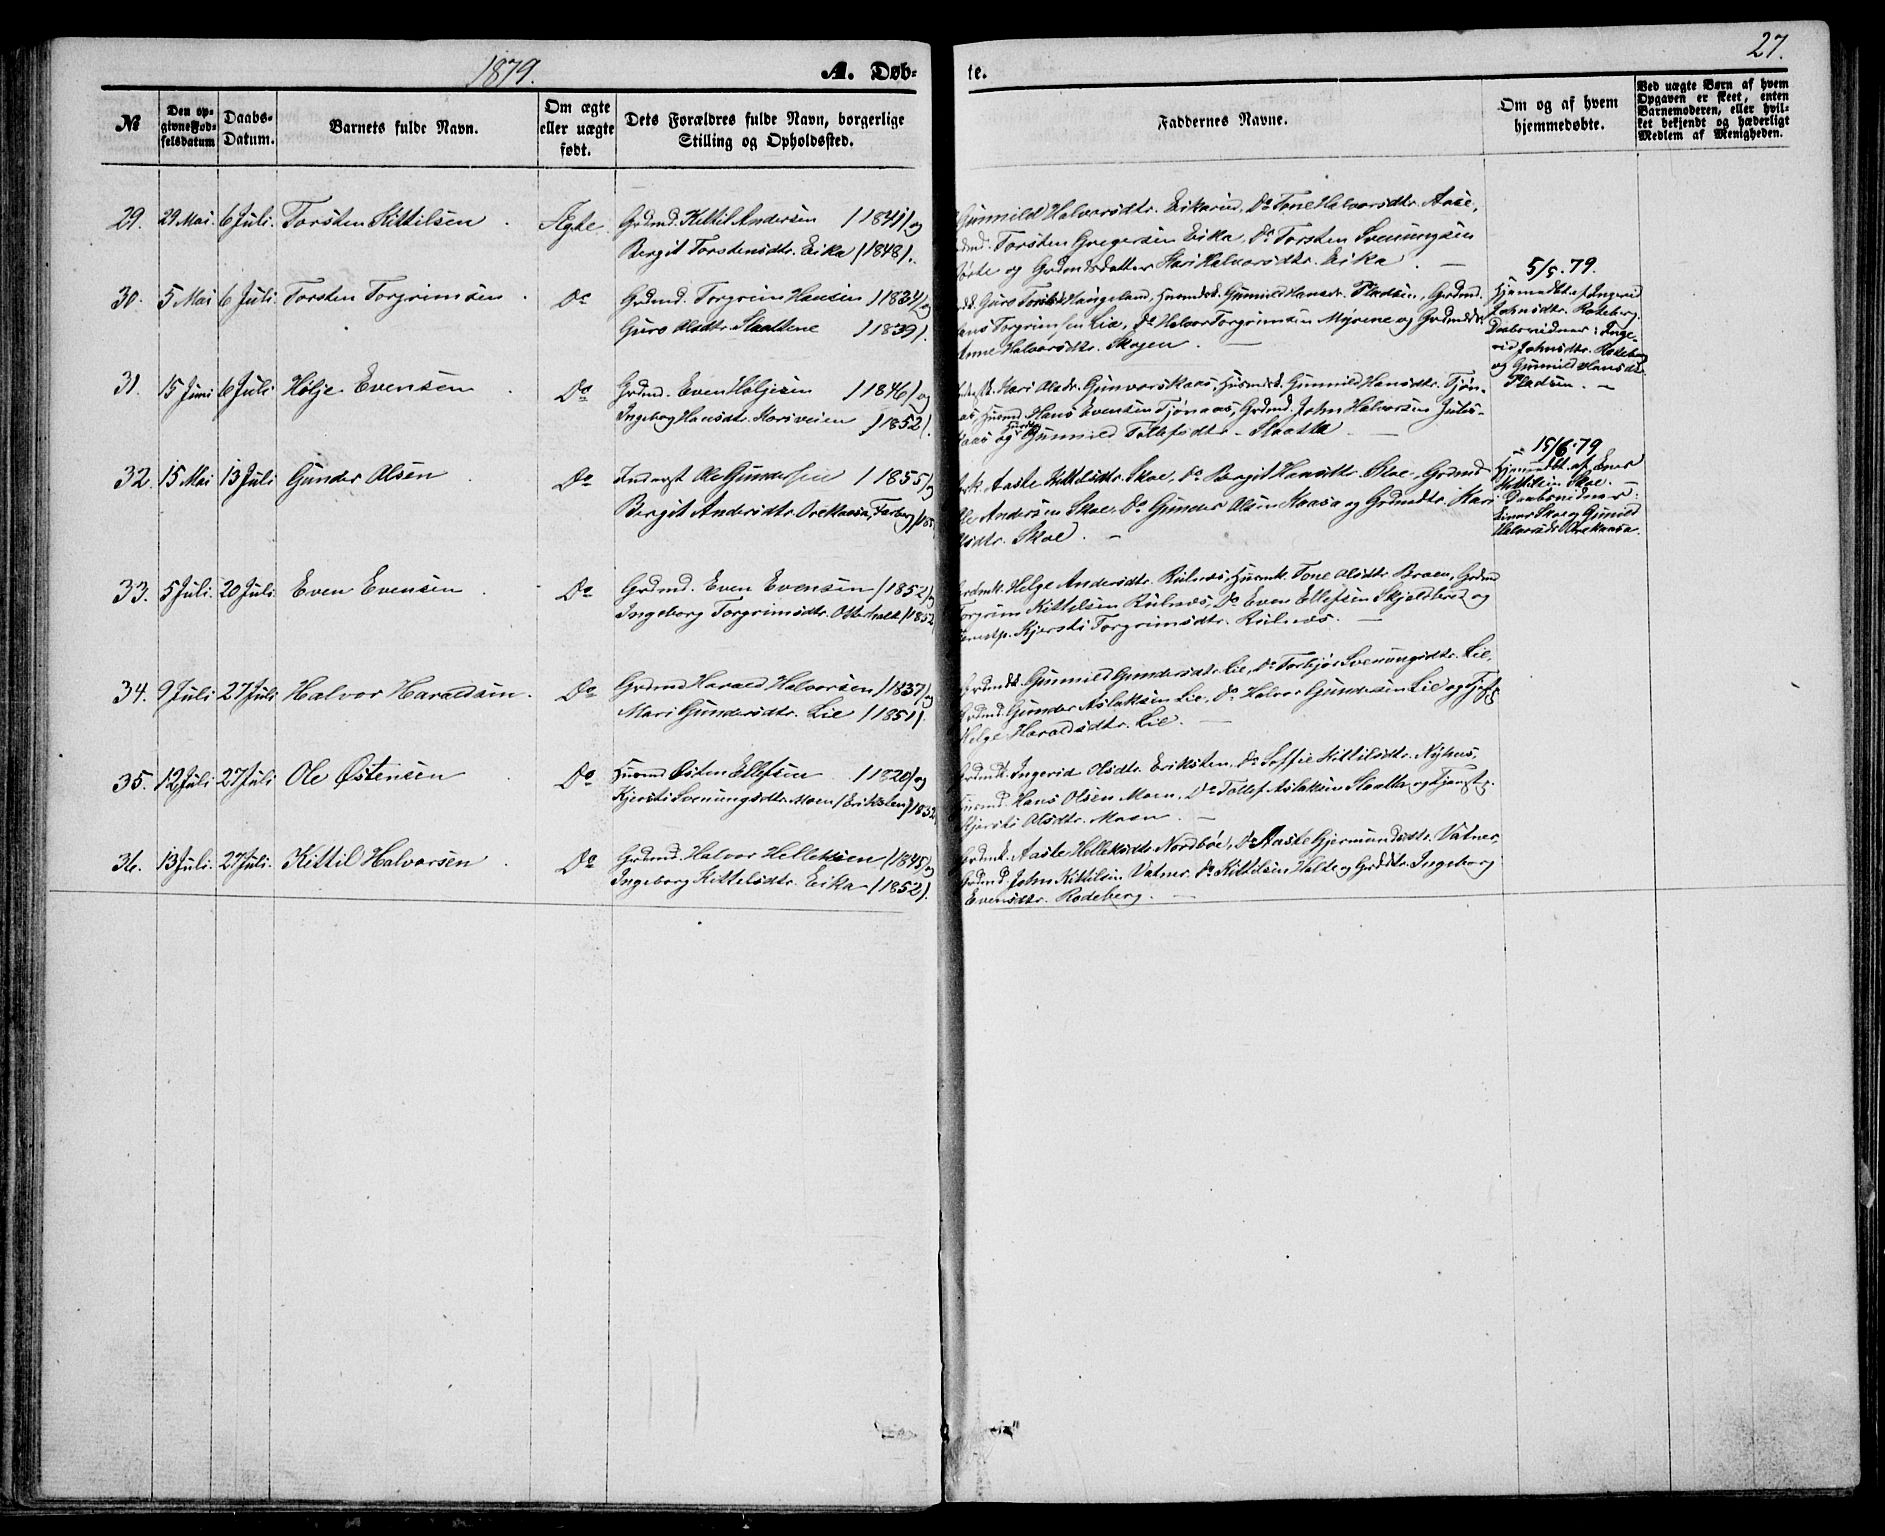 1879.
A. Døb-
te.
27.
№
Den op-
givne Fød-
selsdatum
Daabs-
Datum.
Barnets fulde Navn.
Om ægte
eller uægte
født.
Dets Forældres fulde Navn, borgerlige
Stilling og Opholdssted.
Faddernes Navne.
Om og af hvem
hjemmedøbte.
Ved uægte Børn af hvem
Opgaven er skeet, enten
Barnemoderen, eller hvil-
ket bekjendt og hæderligt
Medlem af Menigheden.
29. 29 Mai. 6 Juli. Torsten Kittilsen. Ægte. Grdmd. Kittil Andersen (1841) og
Bergit Torstensdtr. Eika (1848).
Gunnild Halvorsdtr. Eikarud, Do Tone Halvorsdtr. Aase,
Torsten Gregersen Eika, Do Torsten Svenungsen
og Grdmdsdatter Kari Halvorsdtr. Eika.
30. 5 Mai 6 Juli. Torsten Torgrimsen. Do Grdmd. Torgrim Hansen (1834) og
Guro Olsdtr. Slaattene (1839).
Guro Haugeland, Gunnild Hansdr. Pladsen, Grdmd.
Torgrimsen Lie, Do Halvor Torgrimsen Myrene og
Anne Halvorsdtr. Skogen.
5/5.79.
Hjemmedbt. af Ingerid
Johnsdtr. Roteberg.
Daabsvidner: Inge-
rid Johnsdtr. Roteberg
og Gunnild Hansdtr.
Pladsen.
31. 15 Juni 6 Juli Holje Evensen. Do Grdmd. Even Holjesen (1846) og
Ingeborg Hansdtr. Korsveien (1852).
Kari Olsdr. Gunvorskaas, Gunnild Hansdtr. Tjøn-
aas, Husmd. Hans Evensen Tjønaas, Grdmd. John Halvorsen
og Gunnild Tollefsdtr. Slaatta
32. 15 Mai 13 Juli Gunder Olsen. Do Inderst Ole Gundersen (1855) og
Bergit Andersdtr. Ovrekaasa,
Aaste Kittelsdtr. Skoe, Do Bergit Hansdtr. Skoe, Grdmd.
Ole Andersen Skoe, Do Gunder Olsen Kaasa og Grdmdtr. Kari
Olsdtr. Skoe.
15/6.79
Hjemmedbt. af Einar
Kittilsen Skoe.
Daabsvidner:
Einar Skoe og Gunild
Halvorsdtr. Ovrekaasa.
33. 5 Juli. 20 Juli. Even Evensen. Do Grdmd. Even Evensen (1852) og
Ingeborg Torgrimsdtr. (1852
Helge Andersdtr. Rulnæs, Husmk. Tone Olsdtr. Braen, Grdmd
Torgrim Kittelsen Rulnæs, Do Even Ellefsen Skjeldbred og
Kjersti Torgrimsdtr. Rulnæs.
34. 9 Juli 27 Juli Halvor Haraldsen. Do Grdmd Harald Halvorsen (1837) og
Mari Gundersdtr. Lie (1851).
Gunnild Gundersdtr. Lie, Do Torbjør Svenungsdtr. Lie,
Grdmd. Gunder Aslaksen Lie, Do Halvor Gundersen Lie og
Helge Haraldsdtr. Lie.
35. 12 Juli 27 Juli Ole Østensen. Do Husmd Østen Ellefsen (1829) og
Kjersti Svenungsdtr. Moen (Eriksten) (1832
Grdmk. Ingerid Olsdtr. Eriksten, Do Soffie Kittilsdtr. Nyhus,
Husmd. Hans Olsen Moen, Do Tollef Aslaksen Slaatta og
Kjersti Olsdtr. Moen.
36. 13 Juli. 27 Juli. Kittil Halvorsen. Do Grdmd. Halvor Helleksen (1845) og
Ingeborg Kittelsdtr. Eika (1852).
Grdmk. Aaste Helleksdtr. Nordbøe, Do Aaste Gjermundsdtr. Vatner,
Grdmd. John Kittilsen Vatner, Do Kittilsen Holte og Grdmdtr. Ingeborg
Evensdtr. Rodeberg.